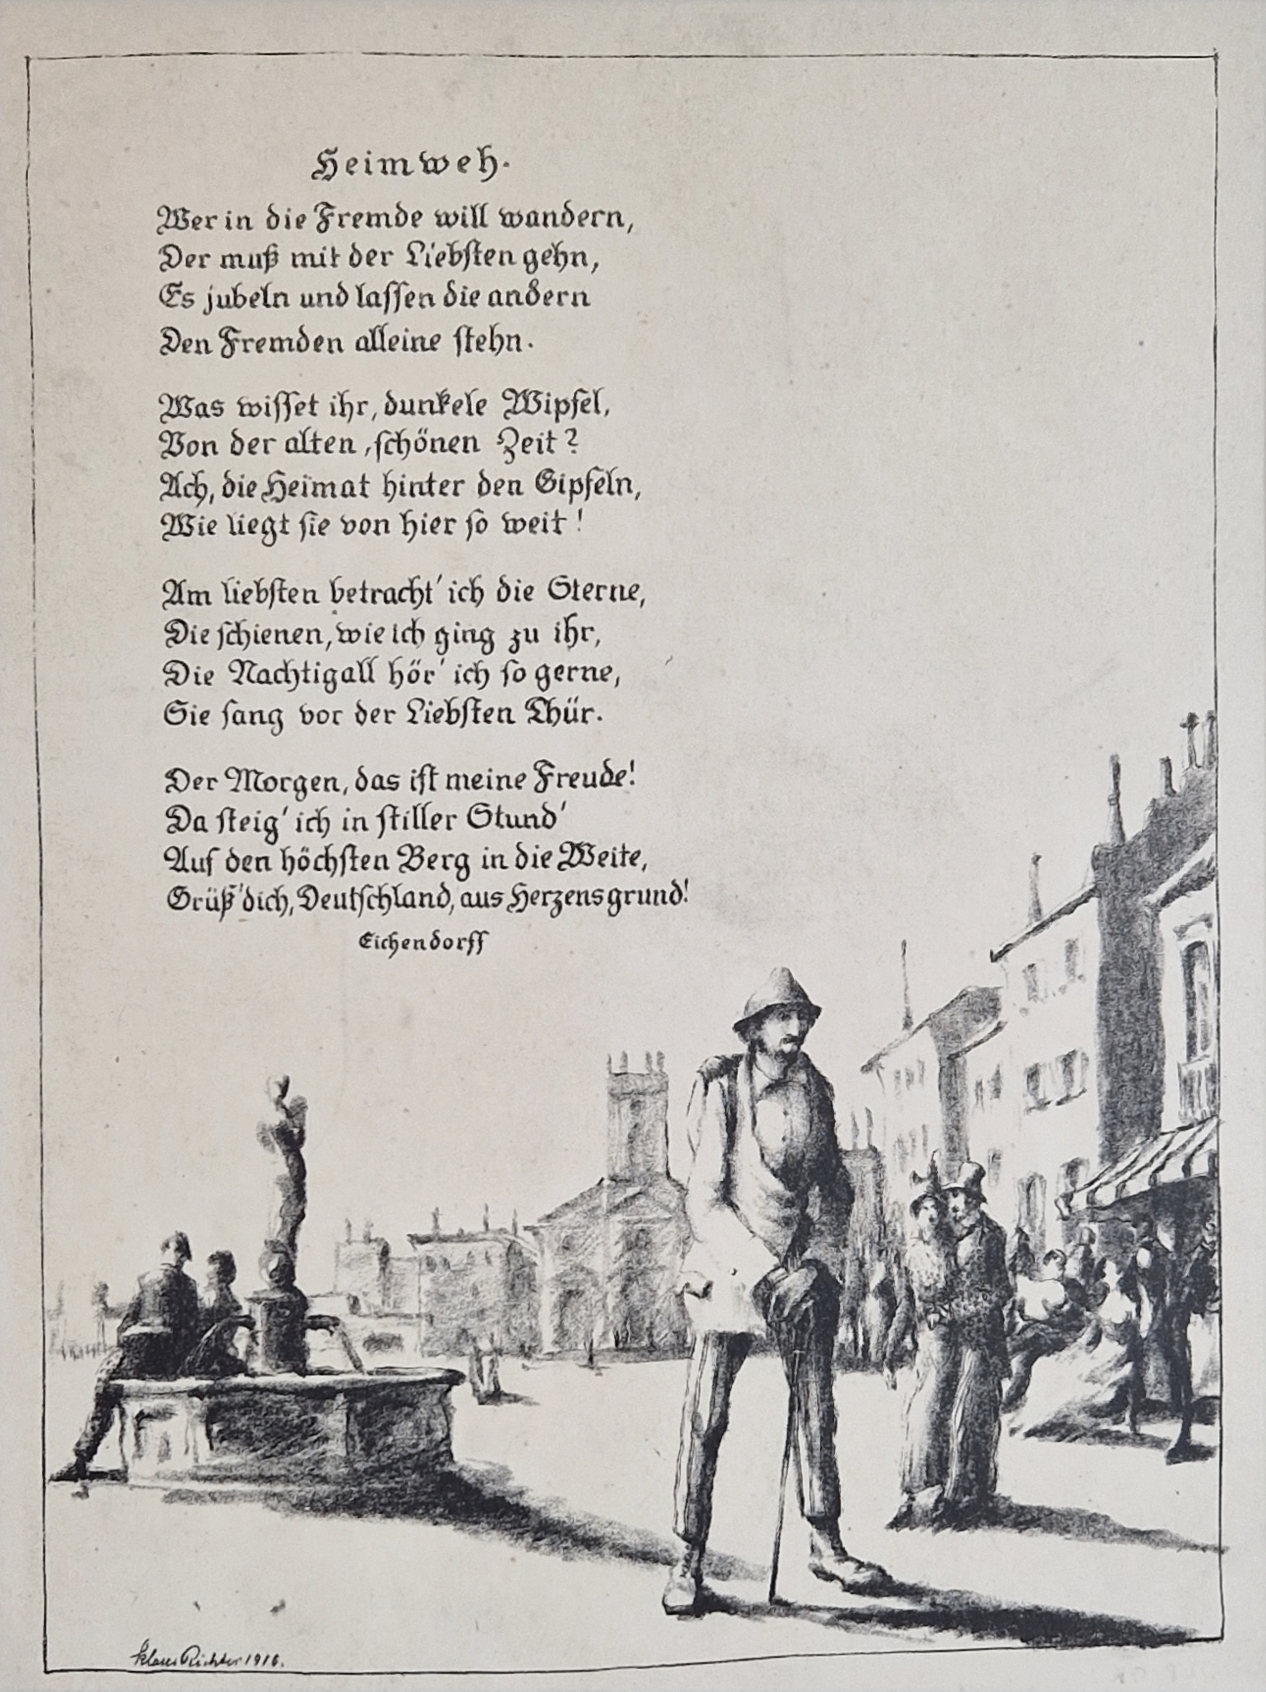 Heimweh.
Wer in die Fremde will wandern,
Der muß mit der Liebsten gehn,
Es jubeln und lassen die andern
Den Fremden alleine stehn.
Was wisset ihr, dunkele Wipfel,
Von der alten, schönen Zeit?
Ach, die Heimat hinter den Gipfeln,
Wie liegt sie von hier so weit!
Am liebsten betracht' ich die Sterne,
Die schienen, wie ich ging zu ihr,
Die Nachtigall hör' ich so gerne,
Sie sang vor der Liebsten Thür.
Der Morgen, das ist meine Freude!
Da steig' ich in stiller Stund'
Auf den höchsten Berg in die Weite,
Grüß' dich, Deutschland, aus Herzensgrund!
Eichendorff
Klaus Richter 1916.